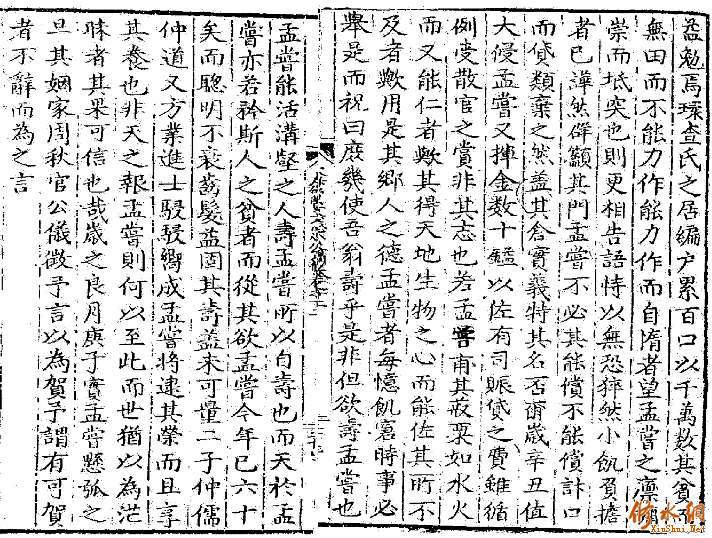 益勉焉環查氏之居編户累百口以千萬数其貧不
無田而不能力作能力作而自惰者望孟嘗之凛
崇而坻突也則更相告語恃以無恐猝然小飢負擔
者已譁然辟籲其門孟嘗不必其能償不能償計口
而貸類棄之然蓋其倉實義特其名否爾歲辛丑值
大侵孟嘗又捧金数十鎰以佐有司賑貸之費雖循
例受散官之賞非其志也若孟嘗甫其菽粟如水火
而又能仁者歟其得天地生物之心而能佐其所不
及者歟用是其鄉人之德孟嘗者每憶飢窘時事必
舉是而祝曰庶幾使吾翁壽乎是非但欲壽孟嘗也
孟嘗能活溝壑之人壽孟嘗所以自壽也而天於孟
嘗亦若矜斯人之貧者而從其欲孟嘗今年已六十
矣而聰明不衰齒髮益固其壽蓋未可量二子仲儒
仲道又方業進士駸駸嚮成孟嘗將逮其榮而且享
其養也非天之報孟嘗則何以至此而世猶以為茫
昧者其果可信也哉歲之良月庚子實孟嘗懸弧之
旦其姻家周秋官公儀徵予言以為賀予謂有可賀
者不辭而為之言
修水網
XiuShui.Net